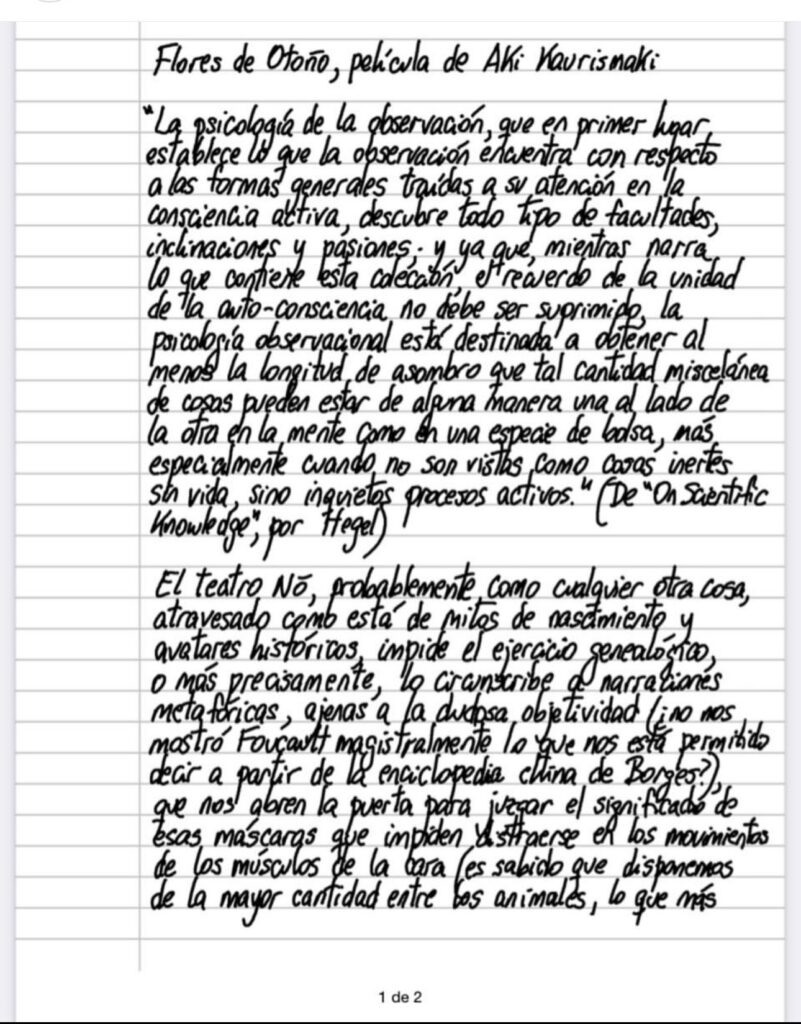 Flores de Otoño, película de Aki Kaurismaki
"La psicología de la observación, que en primer lugar
establece lo que la observación encuentra con respecto
a las formas generales traídas a su atención en la
consciencia activa, descubre todo tipo de facultades,
inclinaciones y pasiones; y ya que, mientras narra
lo que contiene esta colección, el recuerdo de la unidad
de la auto-consciencia no debe ser suprimido, la
psicología observacional está destinada a obtener al
menos la longitud de asombro que tal cantidad miscelánea
de cosas pueden estar de alguna manera una al lado de
la otra en la mente como en una especie de bolsa, más
especialmente cuando no son vistas como cosas inertes
sin vida, sino inquietos procesos activos." (De "On Scientific
Knowledge", por Hegel)
El teatro Nō, probablemente como cualquier otra cosa,
atravesado como está de mitos de nascimiento y
avatares históricos, impide el ejercicio genealógico,
o más precisamente, lo circunscribe a narraciones
metafóricas, ajenas a la dudosa objetividad (¿no nos
mostró Foucault magistralmente lo que nos está permitido
decir a partir de la enciclopedia china de Borges?),
que nos abren la puerta para juzgar el significado de
esas máscaras que impiden distraerse en los movimientos
de los músculos de la cara (es sabido que disponemos
de la mayor cantidad entre los animales, lo que más
1 de 2